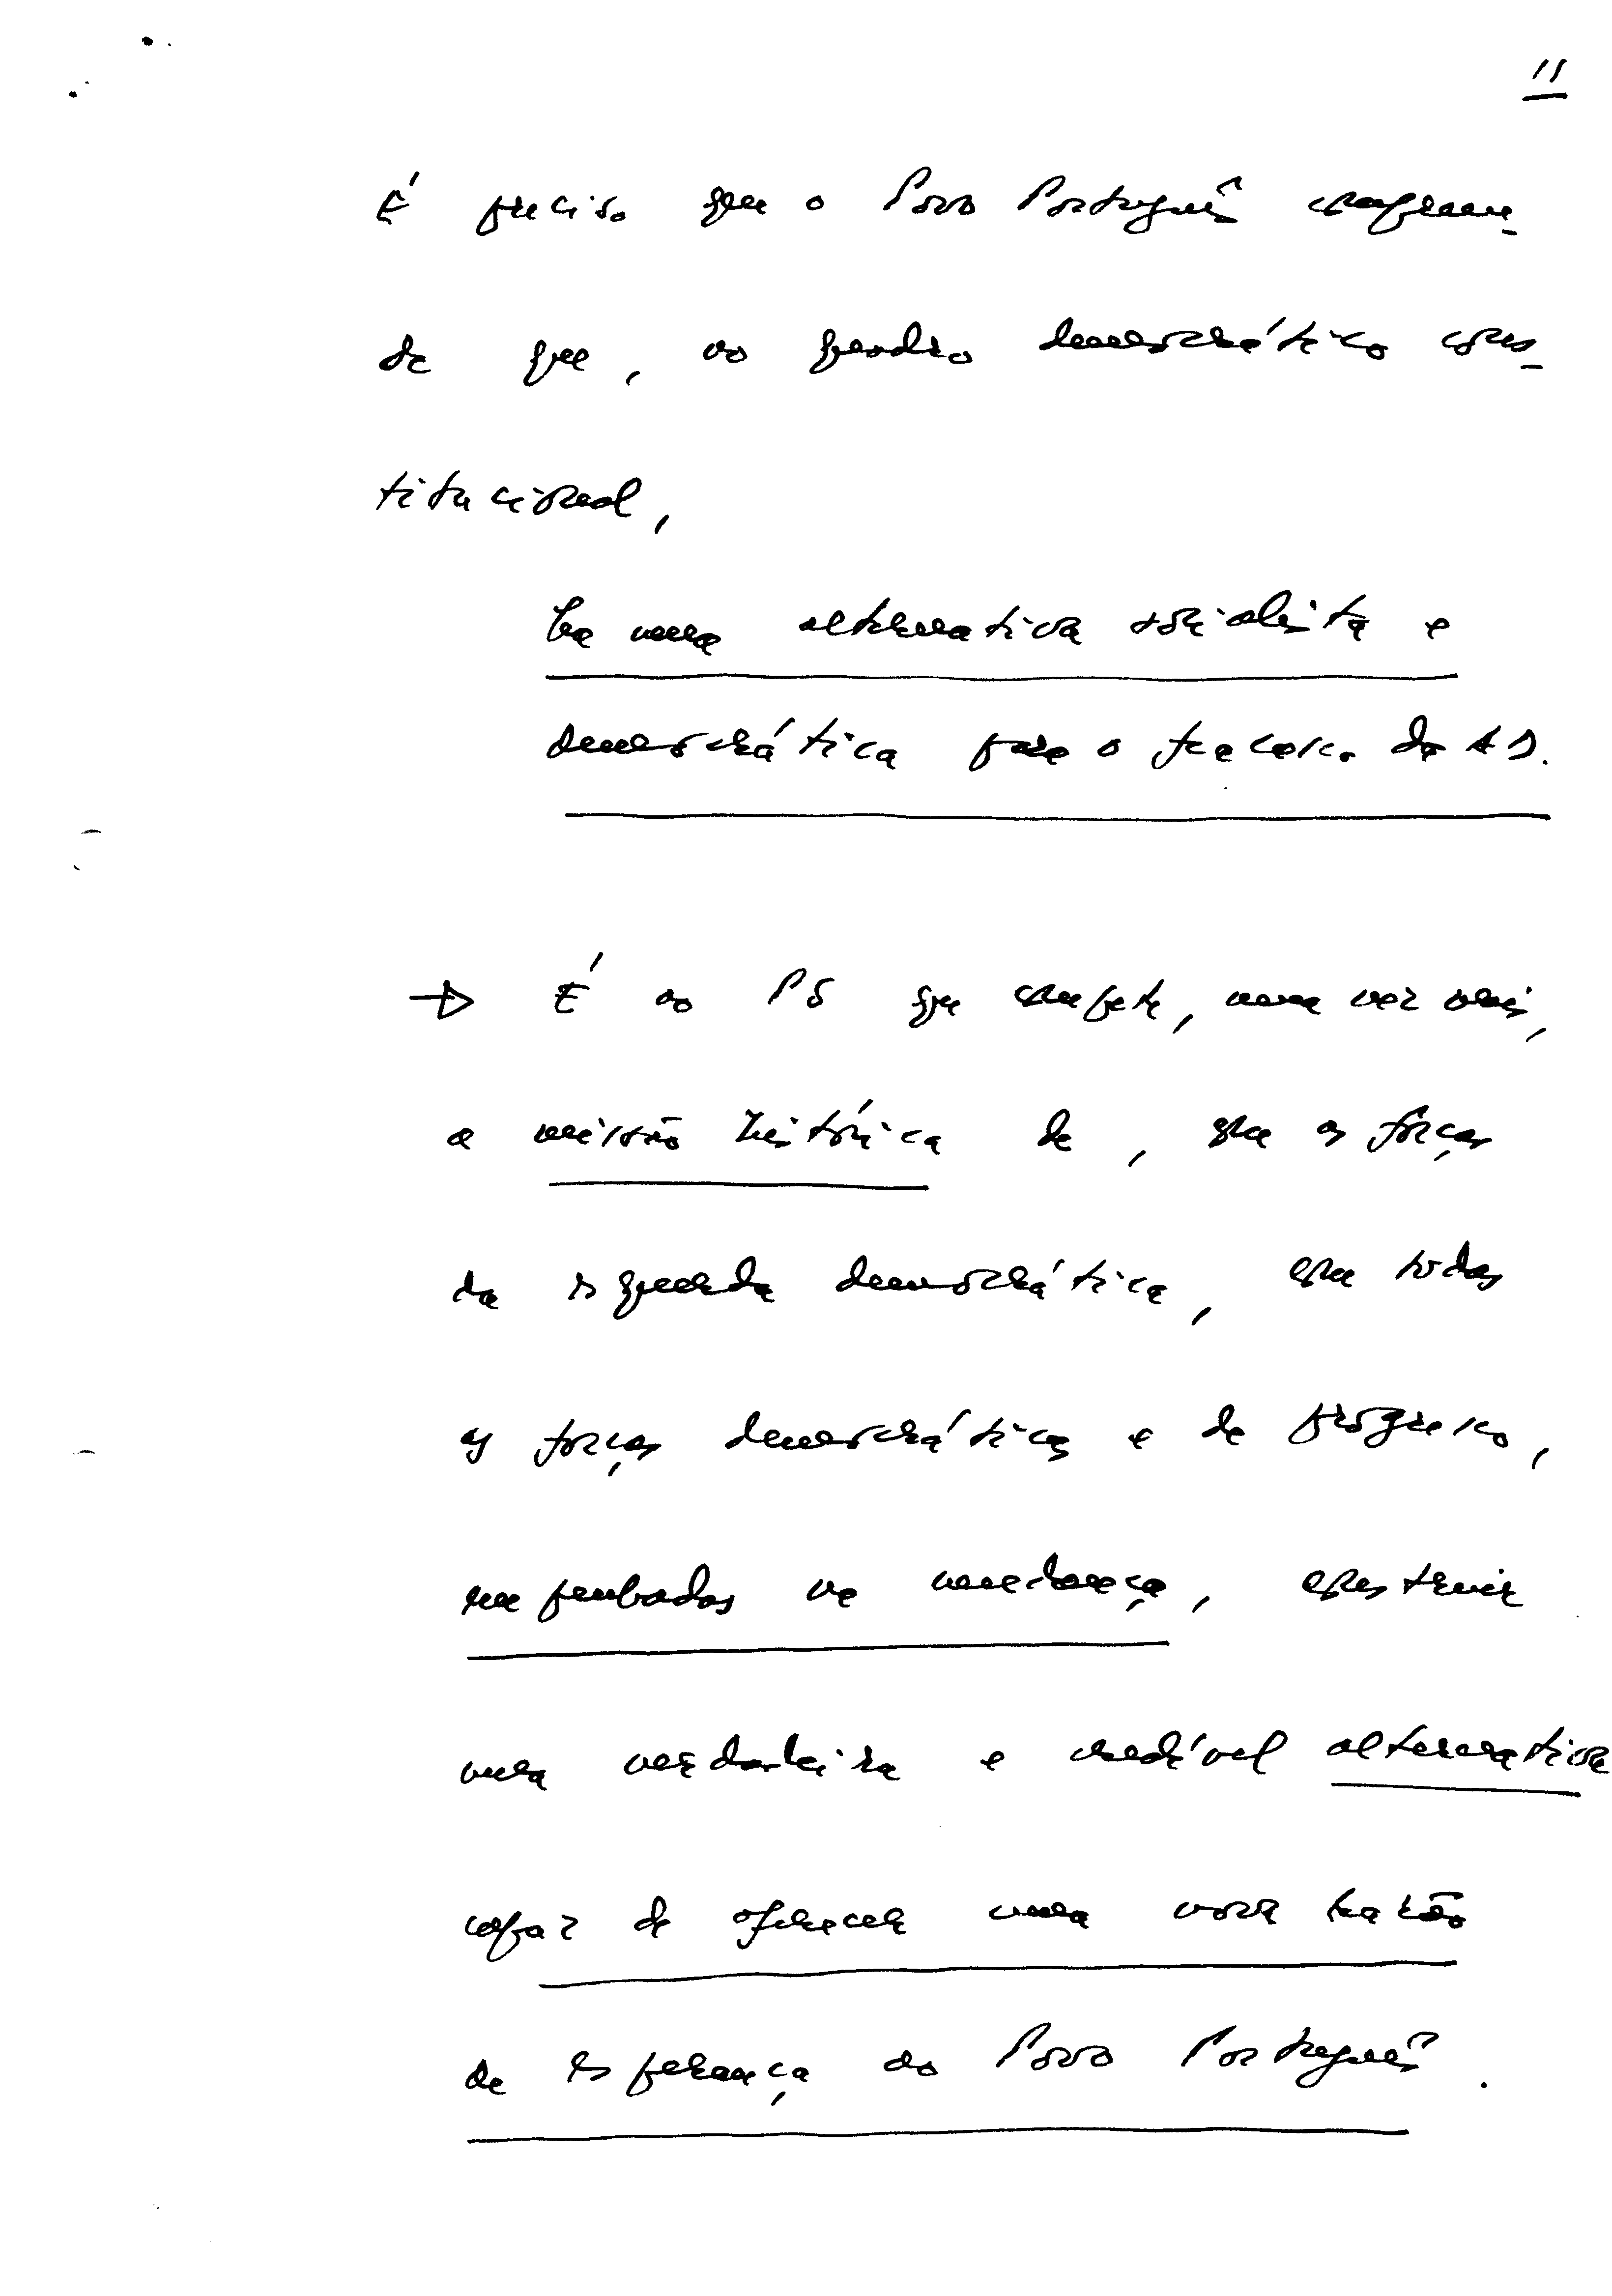 11
É preciso que o Povo Português compreen-
da que, no quadro democrático cons-
titucional,
há uma alternativa socialista e
democrática para o fracasso da AD.
→ É ao PS que compete, uma vez mais,
a missão histórica de, com as forças
da esquerda democrática, com todas
as forças democráticas e de progresso,
empenhadas na mudança, construir
uma verdadeira e credível alternativa
capaz de oferecer uma nova razão
de esperança ao Povo Português.